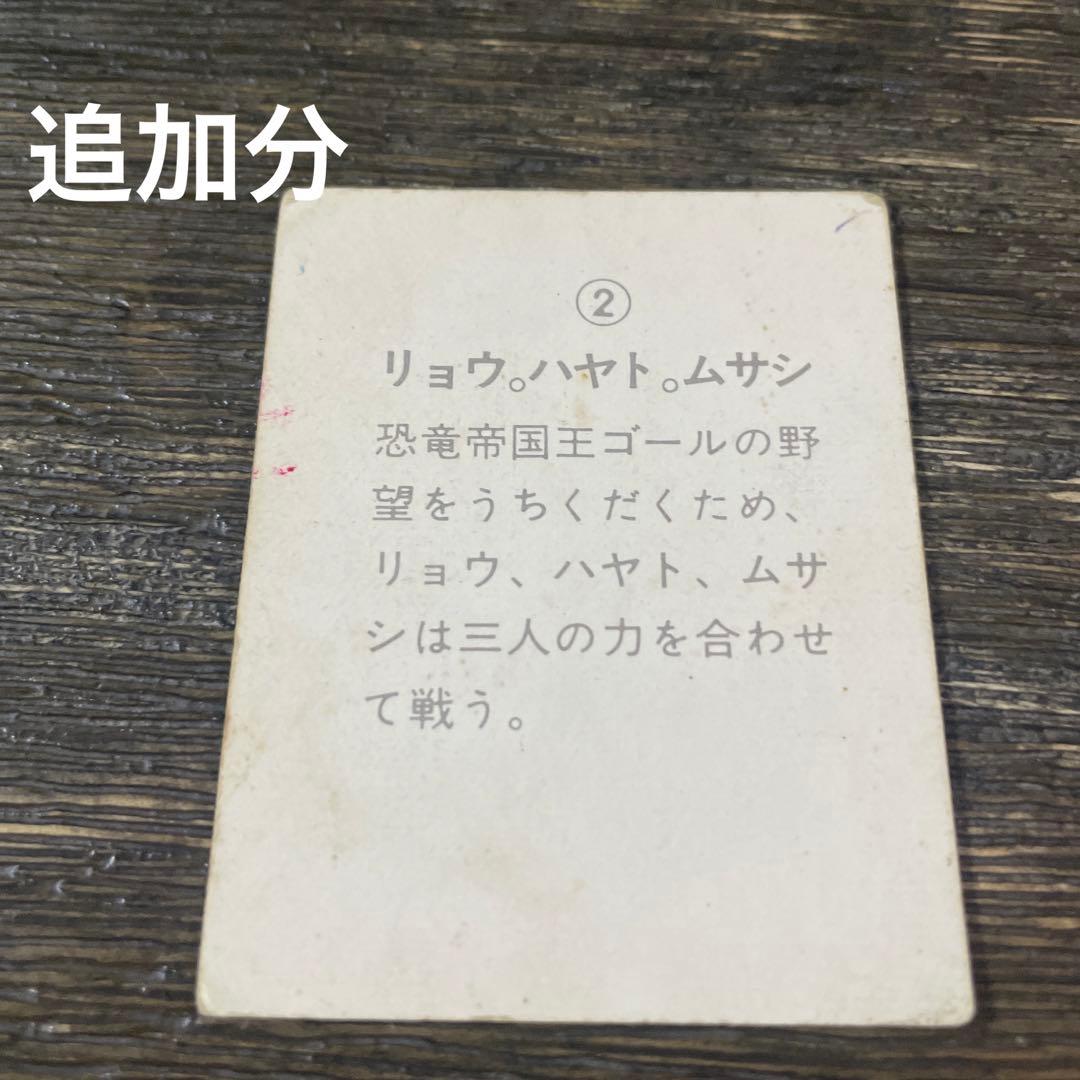 追加分
②
リョウ。ハヤト。ムサシ
恐竜帝国王ゴールの野
望をうちくだくため、
リョウ、ハヤト、ムサ
シは三人の力を合わせ
て戦う。